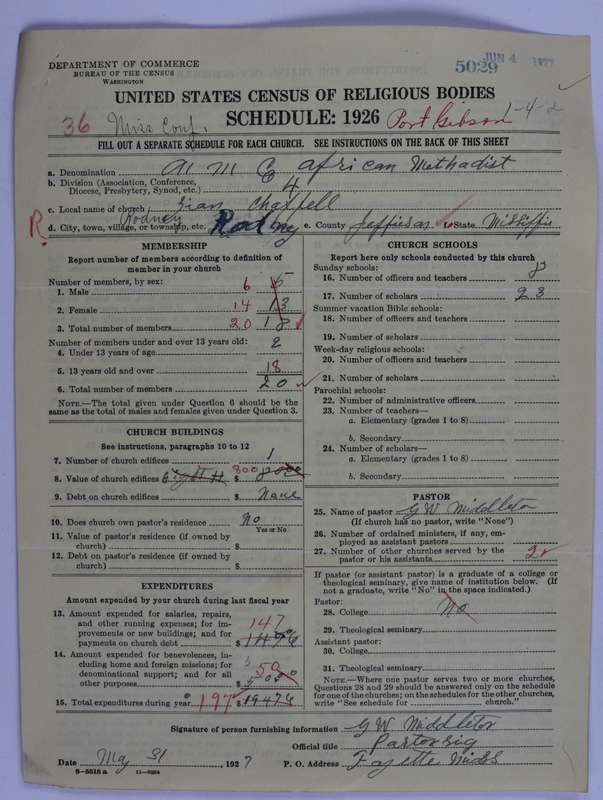 DEPARTMENT OF COMMERCE
BUREAU OF THE CENSUS
WASHINGTON
5029 JUN 4 1927
UNITED STATES CENSUS OF RELIGIOUS BODIES
SCHEDULE: 1926
36 Miss Conf. Port Gibson 1-4-2
FILL OUT A SEPARATE SCHEDULE FOR EACH CHURCH. SEE INSTRUCTIONS ON THE BACK OF THIS SHEET
a. Denomination A M E african Methadist
b. Division (Association, Conference, Diocese, Presbytery, Synod, etc.) 4
c. Local name of church Zian Chappell
R d. City, town, village, or township, etc. Rodney Rodney e. County Jeffersan f. State Mississippi
MEMBERSHIP
Report number of members according to definition of member in your church
Number of members, by sex:
1. Male 6
2. Female 14 13
3. Total number of members 20 18
Number of members under and over 13 years old:
4. Under 13 years of age 2
5. 13 years old and over 18
6. Total number of members 20
NOTE.—The total given under Question 6 should be the same as the total of males and females given under Question 3.
CHURCH BUILDINGS
See instructions, paragraphs 10 to 12
7. Number of church edifices 1
8. Value of church edifices $ 800
9. Debt on church edifices $ None
10. Does church own pastor's residence No
Yes or No
11. Value of pastor's residence (if owned by church) $
12. Debt on pastor's residence (if owned by church) $
EXPENDITURES
Amount expended by your church during last fiscal year
13. Amount expended for salaries, repairs, and other running expenses; for improvements or new buildings; and for payments on church debt $ 147
14. Amount expended for benevolences, including home and foreign missions; for denominational support; and for all other purposes $ 50
15. Total expenditures during year 197 $ 19476
CHURCH SCHOOLS
Report here only schools conducted by this church
Sunday schools:
16. Number of officers and teachers
17. Number of scholars 23
Summer vacation Bible schools:
18. Number of officers and teachers
19. Number of scholars
Week-day religious schools:
20. Number of officers and teachers
21. Number of scholars
Parochial schools:
22. Number of administrative officers
23. Number of teachers—
a. Elementary (grades 1 to 8)
b. Secondary
24. Number of scholars—
a. Elementary (grades 1 to 8)
b. Secondary
PASTOR
25. Name of pastor G W Middleton
(If church has no pastor, write "None")
26. Number of ordained ministers, if any, employed as assistant pastors
27. Number of other churches served by the pastor or his assistants 2
If pastor (or assistant pastor) is a graduate of a college or theological seminary, give name of institution below. (If not a graduate, write "No" in the space indicated.)
Pastor:
28. College No
29. Theological seminary
Assistant pastor:
30. College
31. Theological seminary
NOTE.—Where one pastor serves two or more churches, Questions 28 and 29 should be answered only on the schedule for one of the churches; on the schedules for the other churches, write "See schedule for church."
Signature of person furnishing information G W Middleton
Official title
Date May 31, 1927 P. O. Address Fayette Miss
8—5518 a 11—8004